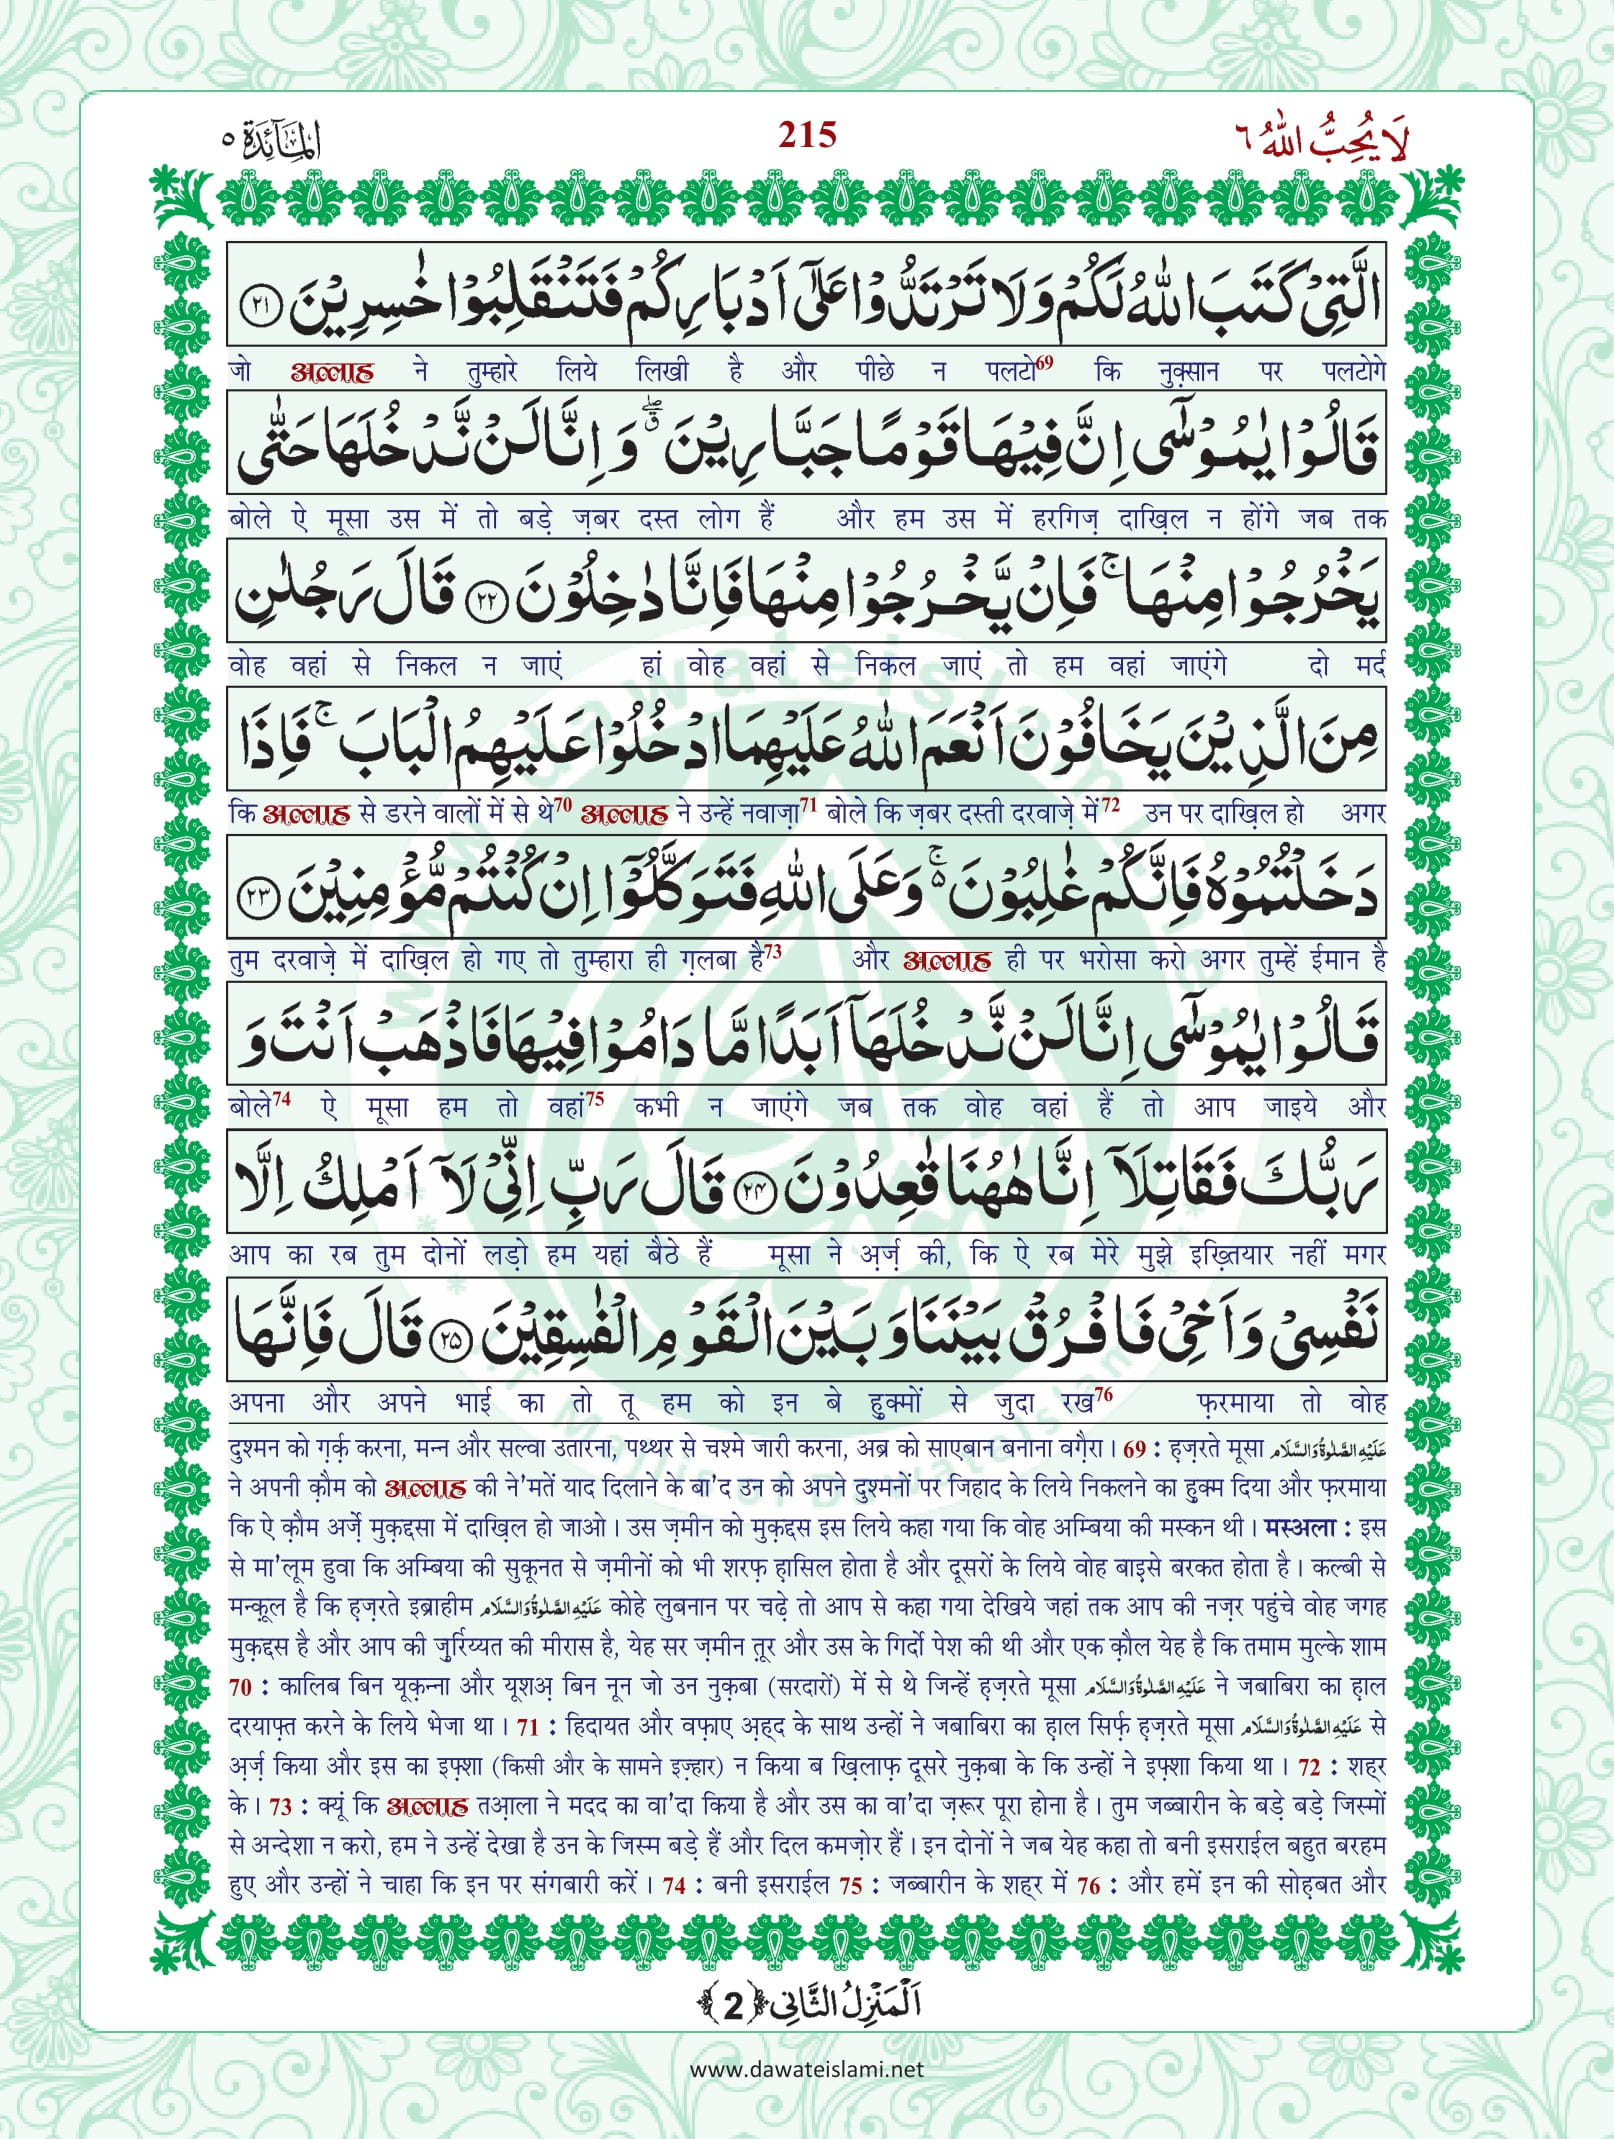 المآئدة ٥
215
لَا يُحِبُّ اللّٰهُ ٦
الَّتِیْ كَتَبَ اللّٰهُ لَكُمْ وَلَا تَرْتَدُّوْا عَلٰۤى اَدْبَارِكُمْ فَتَنْقَلِبُوْا خٰسِرِیْنَ ﴿۲۱﴾
जो अल्लाह ने तुम्हारे लिये लिखी है और पीछे न पलटो69 कि नुक़्सान पर पलटोगे
قَالُوْا یٰمُوْسٰۤى اِنَّ فِیْهَا قَوْمًا جَبَّارِیْنَ ۖۗ وَ اِنَّا لَنْ نَّدْخُلَهَا حَتّٰى
बोले ऐ मूसा उस में तो बड़े ज़बर दस्त लोग हैं और हम उस में हरगिज़ दाख़िल न होंगे जब तक
یَخْرُجُوْا مِنْهَا ۚ فَاِنْ یَّخْرُجُوْا مِنْهَا فَاِنَّا دٰخِلُوْنَ ﴿۲۲﴾ قَالَ رَجُلٰنِ
वोह वहां से निकल न जाएं हां वोह वहां से निकल जाएं तो हम वहां जाएंगे दो मर्द
مِنَ الَّذِیْنَ یَخَافُوْنَ اَنْعَمَ اللّٰهُ عَلَیْهِمَا ادْخُلُوْا عَلَیْهِمُ الْبَابَ ۚ فَاِذَا
कि अल्लाह से डरने वालों में से थे70 अल्लाह ने उन्हें नवाज़ा71 बोले कि ज़बर दस्ती दरवाज़े में72 उन पर दाख़िल हो अगर
دَخَلْتُمُوْهُ فَاِنَّكُمْ غٰلِبُوْنَ ۚ۬ وَعَلَى اللّٰهِ فَتَوَكَّلُوْۤا اِنْ كُنْتُمْ مُّؤْمِنِیْنَ ﴿۲۳﴾
तुम दरवाज़े में दाख़िल हो गए तो तुम्हारा ही ग़लबा है73 और अल्लाह ही पर भरोसा करो अगर तुम्हें ईमान है
قَالُوْا یٰمُوْسٰۤى اِنَّا لَنْ نَّدْخُلَهَاۤ اَبَدًا مَّا دَامُوْا فِیْهَا فَاذْهَبْ اَنْتَ وَ
बोले74 ऐ मूसा हम तो वहां75 कभी न जाएंगे जब तक वोह वहां हैं तो आप जाइये और
رَبُّكَ فَقَاتِلَاۤ اِنَّا هٰهُنَا قٰعِدُوْنَ ﴿۲۴﴾ قَالَ رَبِّ اِنِّیْ لَاۤ اَمْلِكُ اِلَّا
आप का रब तुम दोनों लड़ो हम यहां बैठे हैं मूसा ने अ़र्ज़ की, कि ऐ रब मेरे मुझे इख़्तियार नहीं मगर
نَفْسِیْ وَ اَخِیْ فَافْرُقْ بَیْنَنَا وَ بَیْنَ الْقَوْمِ الْفٰسِقِیْنَ ﴿۲۵﴾ قَالَ فَاِنَّهَا
अपना और अपने भाई का तो तू हम को इन बे हुक्मों से जुदा रख76 फ़रमाया तो वोह
दुश्मन को ग़र्क़ करना, मन्न और सल्वा उतारना, पथ्थर से चश्मे जारी करना, अब्र को साएबान बनाना वग़ैरा । 69 : ह़ज़रते मूसा عَلَیْهِ الصَّلٰوةُ وَالسَّلَام
ने अपनी क़ौम को अल्लाह की ने'मतें याद दिलाने के बा'द उन को अपने दुश्मनों पर जिहाद के लिये निकलने का हुक्म दिया और फ़रमाया
कि ऐ क़ौम अर्ज़े मुक़द्दसा में दाख़िल हो जाओ । उस ज़मीन को मुक़द्दस इस लिये कहा गया कि वोह अम्बिया की मस्कन थी । मस्अला : इस
से मा'लूम हुवा कि अम्बिया की सुकूनत से ज़मीनों को भी शरफ़ ह़ासिल होता है और दूसरों के लिये वोह बाइसे बरकत होता है । कल्बी से
मन्क़ूल है कि ह़ज़रते इब्राहीम عَلَیْهِ الصَّلٰوةُ وَالسَّلَام कोहे लुबनान पर चढ़े तो आप से कहा गया देखिये जहां तक आप की नज़र पहुंचे वोह जगह
मुक़द्दस है और आप की ज़ुर्रिय्यत की मीरास है, येह सर ज़मीन त़ूर और उस के गिर्दो पेश की थी और एक क़ौल येह है कि तमाम मुल्के शाम
70 : कालिब बिन यूक़न्ना और यूशअ़ बिन नून जो उन नुक़बा (सरदारों) में से थे जिन्हें ह़ज़रते मूसा عَلَیْهِ الصَّلٰوةُ وَالسَّلَام ने जबाबिरा का ह़ाल
दरयाफ़्त करने के लिये भेजा था । 71 : हिदायत और वफ़ाए अ़ह्द के साथ उन्हों ने जबाबिरा का ह़ाल सिर्फ़ ह़ज़रते मूसा عَلَیْهِ الصَّلٰوةُ وَالسَّلَام से
अ़र्ज़ किया और इस का इफ़्शा (किसी और के सामने इज़्हार) न किया ब ख़िलाफ़ दूसरे नुक़बा के कि उन्हों ने इफ़्शा किया था । 72 : शह्र
के । 73 : क्यूं कि अल्लाह तआ़ला ने मदद का वा'दा किया है और उस का वा'दा ज़रूर पूरा होना है । तुम जब्बारीन के बड़े बड़े जिस्मों
से अन्देशा न करो, हम ने उन्हें देखा है उन के जिस्म बड़े हैं और दिल कमज़ोर हैं । इन दोनों ने जब येह कहा तो बनी इसराईल बहुत बरहम
हुए और उन्हों ने चाहा कि इन पर संगबारी करें । 74 : बनी इसराईल 75 : जब्बारीन के शह्र में 76 : और हमें इन की सोह़बत और
اَلْمَنْزِلُ الثَّانِی ﴿2﴾
www.dawateislami.net